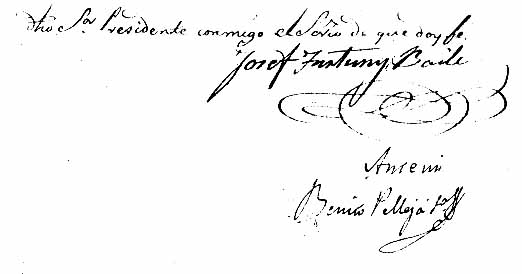 dho Sor. Presidente conmigo el Srio de que doy fe.
Josef Fortuny Baile
Ante mi
Benito Pellejà